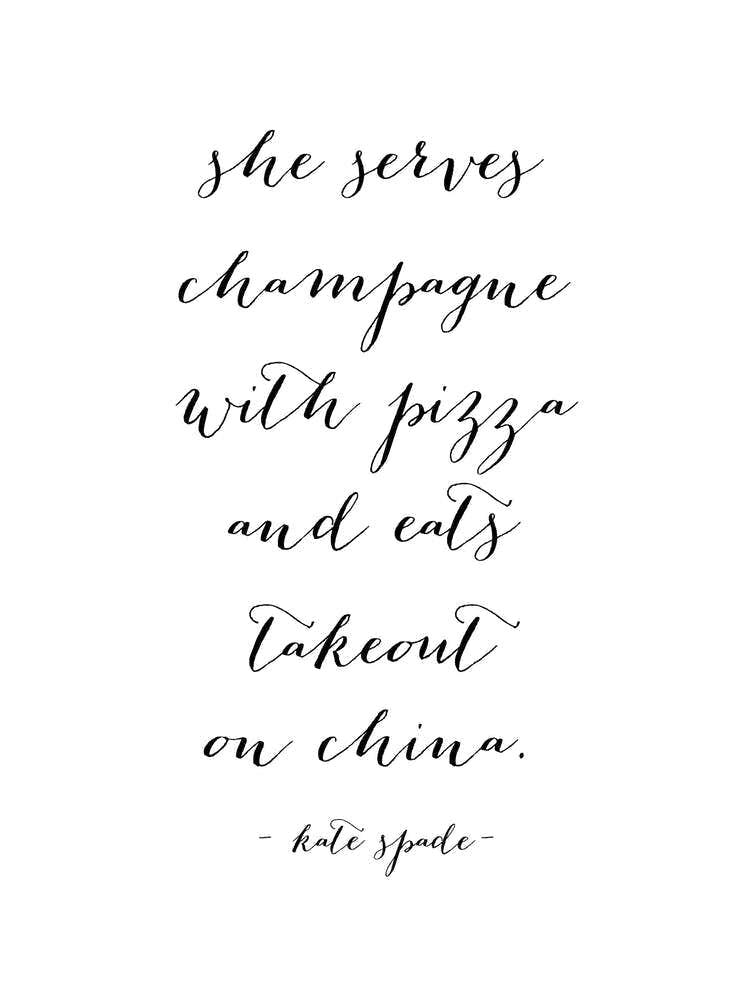 she serves
champagne
with pizza
and eats
takeout
on china.
- kate spade-